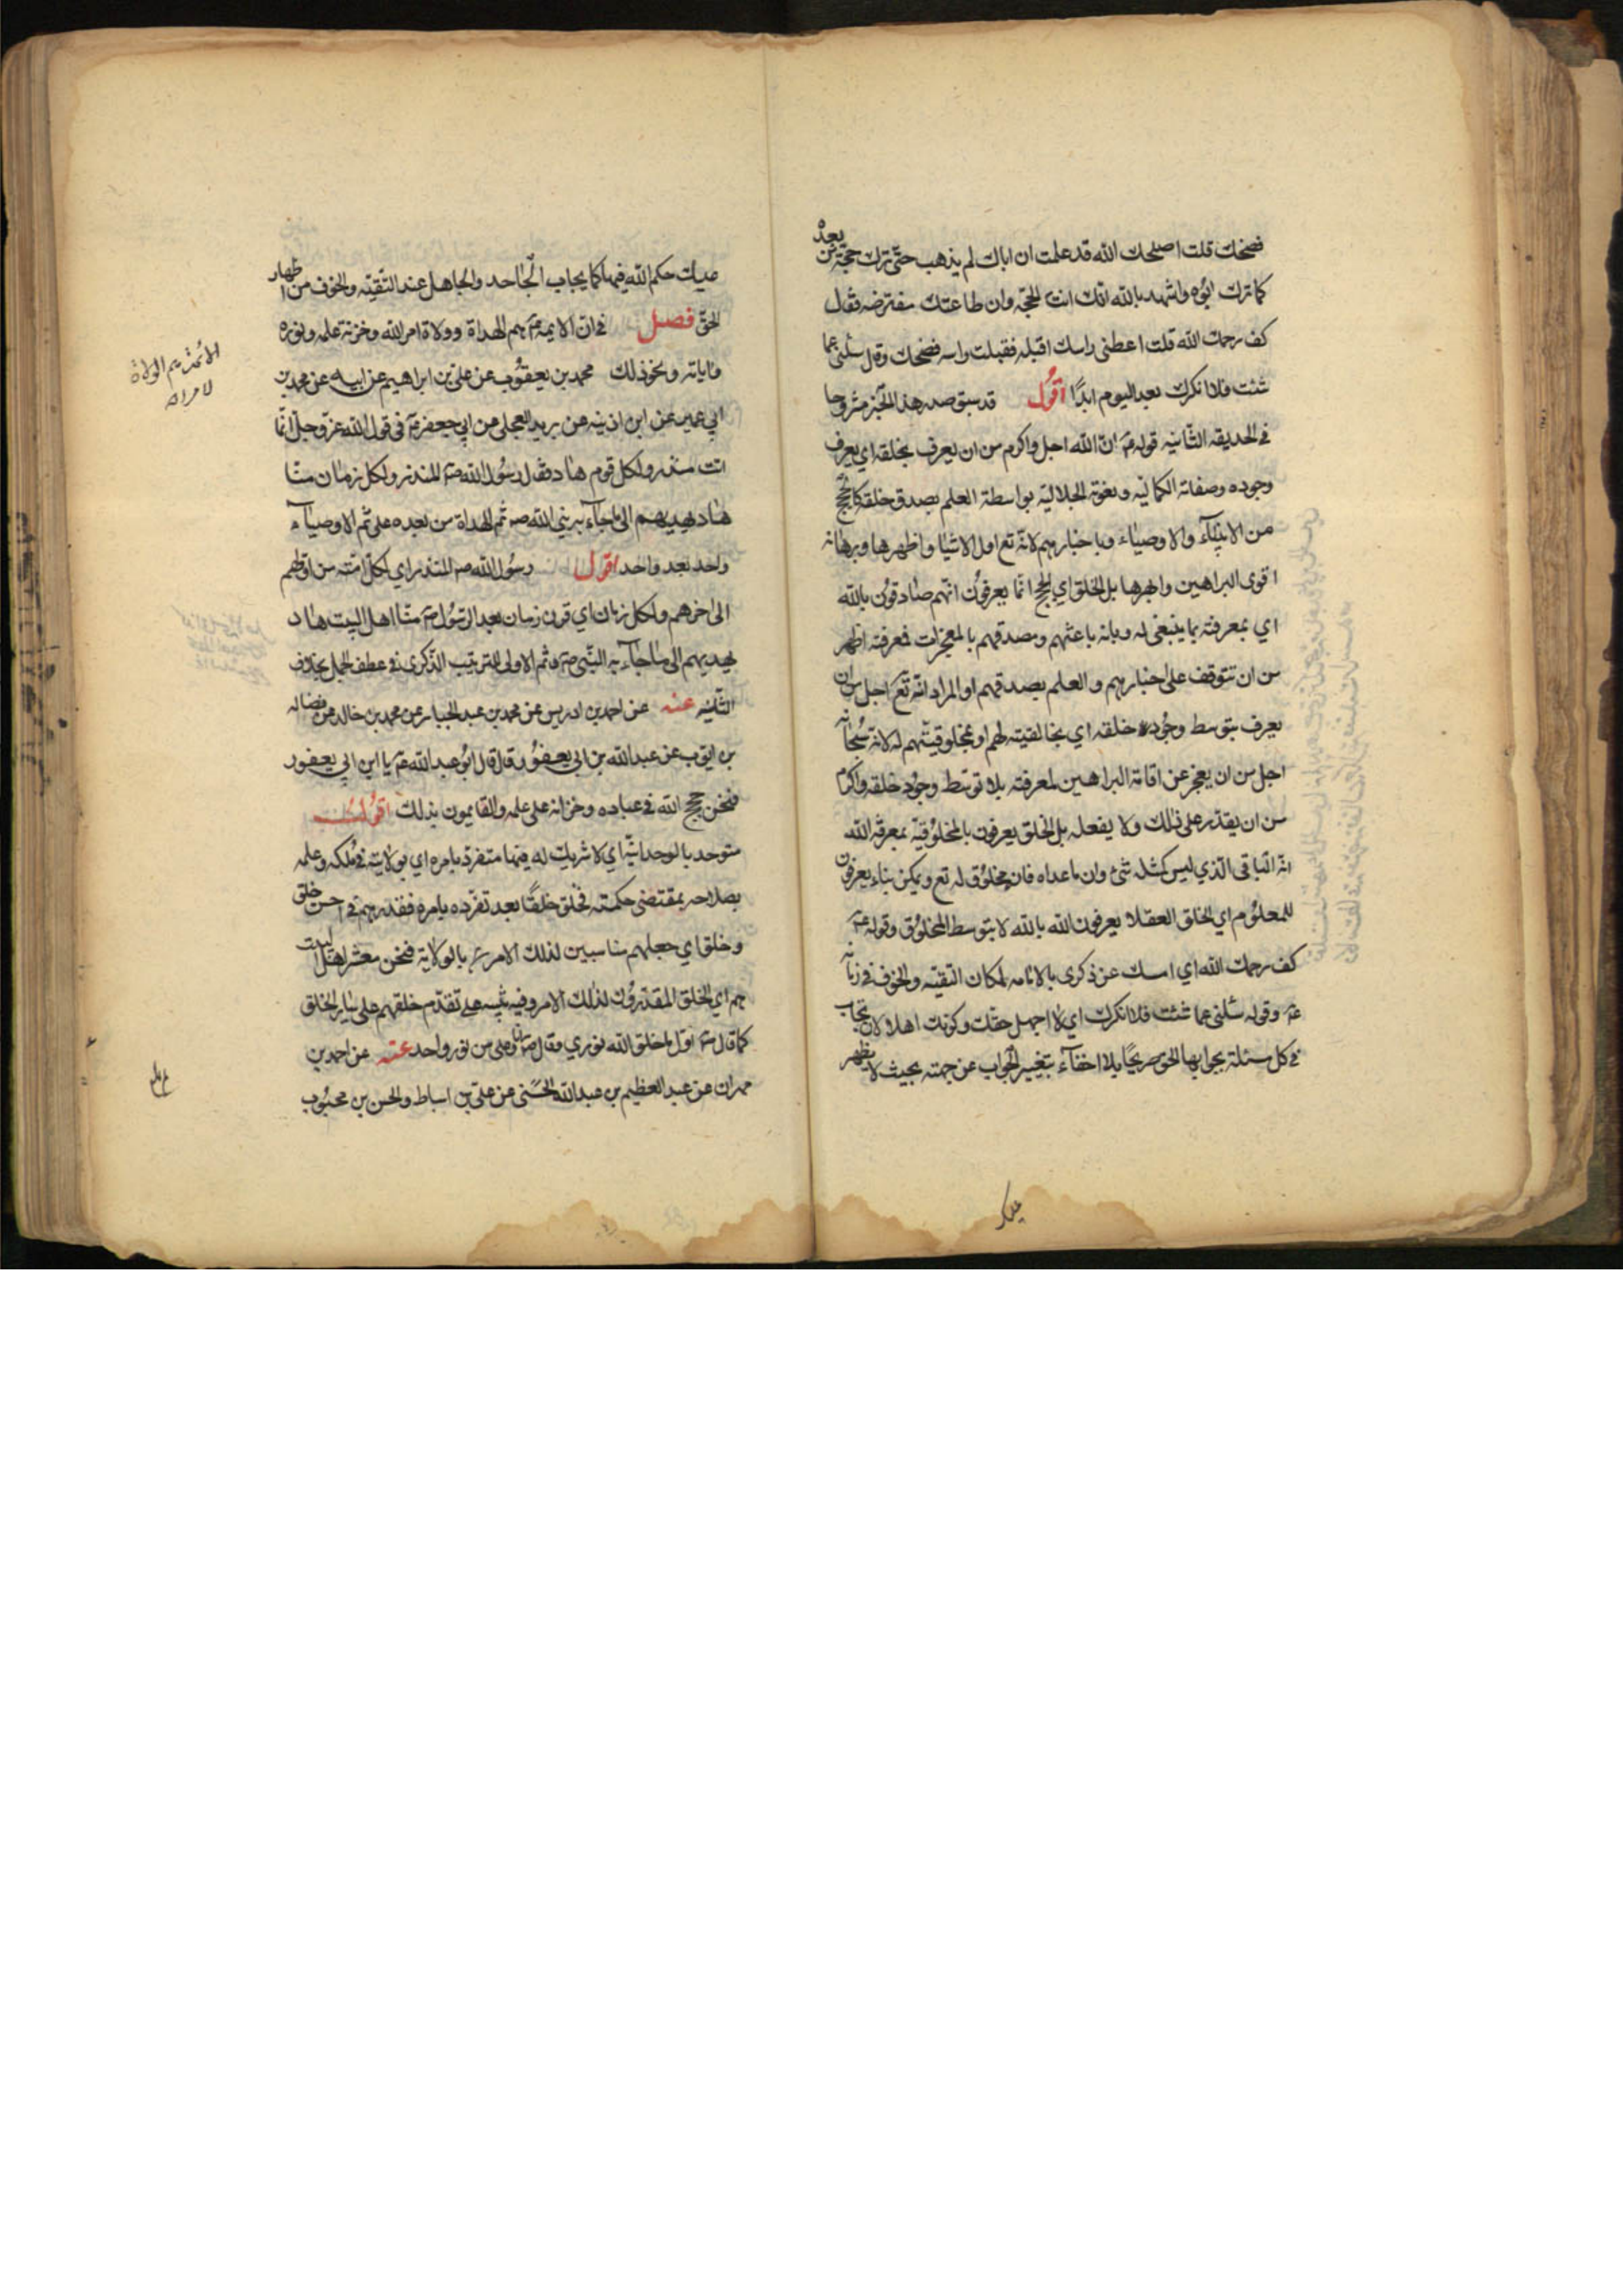 فضحك قلت اصلحك الله قد علمت ان اباك لم يذهب حتى ترك حجة من بعده
كما ترك ابوه واشهد بالله انك انت الحجة وان طاعتك مفترضه فقال
كف رحمك الله قلت اعطنى راسك اقبله فقبلت راسه فضحك وقال سلنى عما
شئت فلا انكرك بعد اليوم ابدًا اقول قد سبق صدر هذا الخبر مشروحا
فى الحديقه الثانيه قوله عم ان الله اجل واكرم من ان يعرف بخلقه اى يعرف
وجوده وصفاته الكماليه ونعوته الجلاليه بواسطة العلم بصدق خلقه كالحجج
من الانبيآء والاوصياء وباخبارهم لانه تع اول الاشيا واظهرها وبرهانه
اقوى البراهين وابهرها بل الخلق اى الحجج انما يعرفون انهم صادقون بالله
اي بمعرفته بما ينبغى له وبانه باعثهم ومصدقهم بالمعجزات فمعرفته اظهر
من ان تتوقف على اخبارهم والعلم بصدقهم او المراد انه تع اجل من ان
يعرف بتوسط وجوده خلقه اي بخالقيته لهم او بمخلوقيتهم له لانه سبحانه
اجل من ان يعجز عن اقامة البراهين لمعرفته بلا توسط وجود خلقه واكرم
من ان يقدر على ذلك ولا يفعله بل الخلق يعرفون بالمخلوقية بمعرفة الله
انه الباقى الذي ليس كمثله شئ وان ما عداه فان مخلوق له تع ويمكن بناء يعرفون
للمعلوم اي الخلق العقلا يعرفون الله بالله لا بتوسط المخلوق وقوله عم
كف رحمك الله اي امسك عن ذكرى بالامامه لمكان التقيه والخوف فى زمانه
عم وقوله سلنى عما شئت فلا انكرك اي لا اجهل حقك وكونك اهلا لان تجاب
فى كل مسئلة بجوابها الحق صريحًا بلا اخفآء بتغيير الجواب عن جهته بحيث لا يظهر
عليك
عليك حكم الله فيها كما يجاب الجاحد والجاهل عند التقيه والخوف من اظهار
الحق فصل فى ان الايمه عم هم الهداة وولاة امر الله وخزنة علمه ونوره
واياته ونحو ذلك محمد بن يعقوب عن على بن ابراهيم عن ابيه عن محمد بن
ابي عمير عن ابن اذينه عن بريد العجلى عن ابى جعفر عم فى قول الله عز وجل انما
انت منذر ولكل قوم هاد فقال رسول الله ص المنذر ولكل زمان منا
هاد يهديهم الى ما جآء به نبى الله ص ثم الهداة من بعده على ثم الاوصيآء
واحد بعد واحد اقول رسول الله ص المنذر اي لكل امته من اولهم
الى اخرهم ولكل زمان اي قرن زمان بعد الرسول ص منا اهل البيت هاد
يهديهم الى ما جآء به النبى ص وثم الاولى للترتيب الذكرى فى عطف الجمل بخلاف
الثانيه عنه عن احمد بن ادريس عن محمد بن عبد الجبار عن محمد بن خالد عن فضاله
بن ايوب عن عبد الله بن ابى يعفور قال قال ابو عبد الله عم يا ابن ابي يعفور
فنحن حجج الله فى عباده وخزانه على علمه والقايمون بذلك اقول
متوحد بالوحدانية اي لا شريك له فيها متفرد بامره اي بولايته فى ملكه وعلمه
بصلاحه بمقتضى حكمته فخلق خلقًا بعد تفرده بامره فقدرهم فى احسن خلق
وخلق اي جعلهم مناسبين لذلك الامر بالولاية فنحن معشر اهل البيت
هم اي الخلق المقدرون لذلك الامر وفيه تنبيه على تقدم خلقهم على ساير الخلق
كما قال ص اول ما خلق الله نورى وقال ص انا وعلى من نور واحد عنه عن احمد بن
مهران عن عبد العظيم بن عبد الله الحسنى عن على بن اسباط والحسن بن محبوب
الائمة هم الولاة
لامر الله